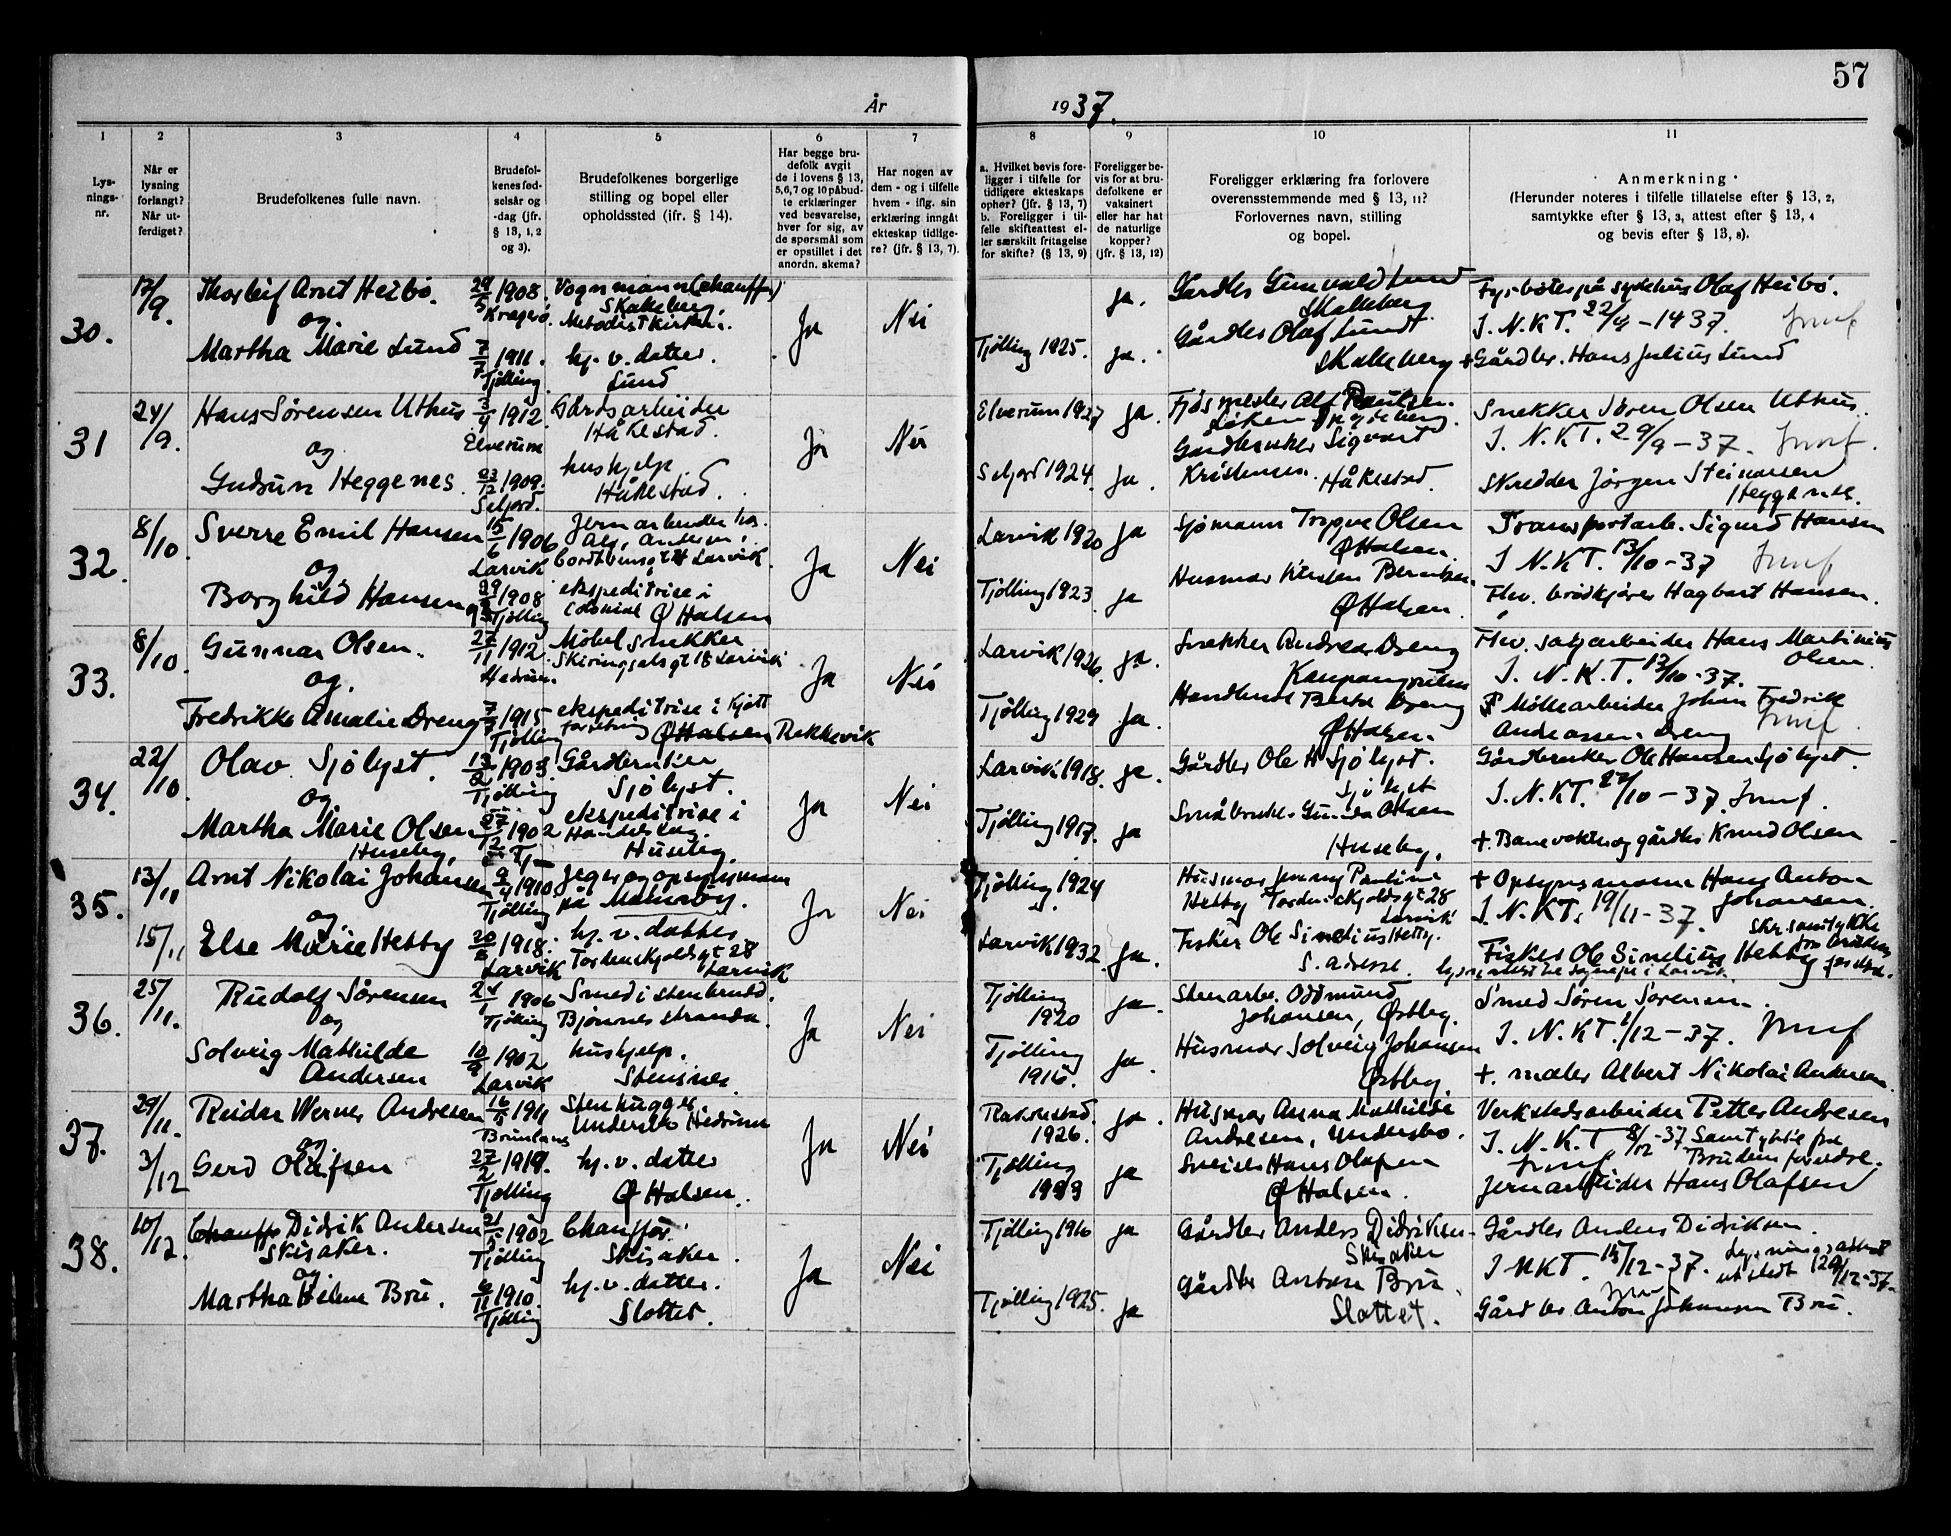 57
År
1937.
1
2
3
4
5
6
7
8
9
10
11
Lys-
nings-
nr.
Når er
lysning
forlangt?
Når ut-
ferdiget?
Brudefolkenes fulle navn.
Brudefol-
kenes fød-
selsår og
-dag (jfr.
§ 13, 1, 2
og 3).
Brudefolkenes borgerlige
stilling og bopel eller
opholdssted (ifr. § 14).
Har begge bru-
defolk avgit
de i lovens § 13,
5, 6, 7 og 10 påbud-
te erklæringer
ved besvarelse,
hver for sig, av
de spørsmål som
er opstillet i det
anordn. skema?
Har nogen av
dem - og i tilfelle
hvem - iflg. sin
erklæring inngåt
ekteskap tidlige-
re? (jfr. § 13, 7).
a. Hvilket bevis fore-
ligger i tilfelle for
tidligere ekteskaps
ophør? (jfr. § 13, 7)
b. Foreligger i til-
felle skifteattest el-
ler særskilt fritagelse
for skifte? (§ 13, 9)
Foreligger be-
vis for at bru-
defolkene er
vaksinert
eller har hat
de naturlige
kopper?
(jfr. § 13, 12)
Foreligger erklæring fra forlovere
overensstemmende med § 13, 11?
Forlovernes navn, stilling
og bopel.
Anmerkning
(Herunder noteres i tilfelle tillatelse efter § 13, 2,
samtykke efter § 13, 3, attest efter § 13, 4
og bevis efter § 13, 8).
30.
17/9.
Thorleif Arnt Heibø.
og.
Martha Marie Lund
29/5 1908.
Kragerø.
7/7 1911.
Tjølling
Vognmann (chauffør)
Skalleberg.
Metodistkirken.
hj. v. datter.
Lund
Ja
Nei
Tjølling 1925.
ja.
ja.
Gårdbr Gunvald Lund
Skalleberg.
Gårdbr Olaf Lund
Skalleberg
Fyrbøter på sykehus Olaf Heibø.
I. N. K T. 22/9 - 1937.
+ Gårdbr. Hans Julius Lund
31
24/9.
Hans Sørensen Uthus
og
Gudrun Heggenes.
3/9 1912
Elverum
23/12 1909.
Seljord.
Gårdsarbeider
Håkestad.
hushjelp
Håkestad.
Ja
Nei
Elverum 1927
Seljord 1924.
ja.
ja.
Fjøsmester Alf Paulsen.
Gårdbruker Sigvart
Kristensen. Håkestad.
Snekker Søren Olsen Uthus.
I. N. K T. 29/9 - 37.
Skredder Jørgen Steinarsen
Heggenes.
32.
8/10.
Sverre Emil Hansen
og
Borghild Hansen
15/6 1906
Larvik
1908
Tjølling
Jernarbeider hos
Alf. Andersen,
Larvik.
ekspeditrise i
colonial Ø Halsen
Ja
Nei
Larvik 1920
Tjølling 1923
ja
ja
Sjømann Trygve Olsen
Ø Halsen.
Husmor Kirsten Berntsen.
Ø Halsen.
Transportarb. Sigurd Hansen
I N. K T. 13/10 - 37
Fhv. brødkjører Hagbart Hansen.
33.
8/10.
Gunnar Olsen.
og.
Fredrikke Amalie Dreng
27/11 1912
Hedrum.
1915
Tjølling
Møbelsnekker
Skiringsalsgt 18 Larvik
ekspeditrise i kjøtt
forretning Ø Halsen Rekkevik
Ja
Nei
Larvik 1926
Tjølling 1929
ja.
ja.
Snekker Andreas Dreng
Kaupangruten
Dreng
Ø Halsen.
Fhv. sagarbeider Hans Martinius
Olsen.
I. N. K. T. 13/10 - 37.
Møllearbeider Johan Fredrik
Andreassen Dreng
34.
22/10.
Olav Sjølyst.
og
Martha Marie Olsen
Huseby.
13/2 1903.
Tjølling
1902
Tj—
Gårdbruker
Sjølyst.
ekspeditrise i
Handelslag.
Huseby.
Ja
Nei
Larvik 1918.
Tjølling 1917.
ja.
ja
Gårdbr Ole H Sjølyst.
Sjølyst
Olsen
Huseby.
Gårdbruker Ole Hansen Sjølyst.
I. N. K T. 27/10 - 37.
+ Banevokter og gårdbr Knud Olsen
35.
13/11
15/11
Arnt Nikolai Johansen
og
Else Marie Hetty
9/4 1910
Tjølling
20/8 1918.
Larvik
Jeger og opsynsmann
på Malmøy.
hj. v. datter
Tordenskjoldsgt 28
Larvik
Ja
Nei
Tjølling 1924
Larvik 1932
ja.
Husmor Jenny Pauline
Hetty Tordenskjoldsgt 28
Larvik
Fisker Ole Sinelius Hetty.
S. adresse.
+ Opsynsmann Hans Anton
Johansen.
I. N. K T. 19/11 - 37.
Skr. samtykke
fra brudens
foreldre.
Fisker Ole Sinelius Hetty
36.
25/11.
Rudolf Sørensen
og
Solveig Mathilde
Andersen
24/1 1906
Tjølling
10/9 1902
Larvik
Smed i stenbrudd.
Bjønnes stranda.
hushjelp.
Stensnes.
Ja
Nei
Tjølling
1920
Tjølling
1916.
ja.
ja.
Stenarb. Oddmund
Johansen, Østby.
Husmor Solveig Johansen
Østby.
Smed Søren Sørensen.
I. N. K T 1/12 - 37.
+. maler Albert Nikolai Andersen.
37.
29/11.
3/12
Reidar Werner Andresen
og
Gerd Olafsen
16/5 1911
Brunlanes
27/2 1919.
Tjølling
Stenhugger
Undersbo Hedrum
hj. v. datter
Ø Halsen.
Ja
Nei
1926.
Tjølling
1933
ja.
ja
Husmor Anna Mathilde
Andresen, Undersbo.
Sveiser Hans Olafsen
Ø Halsen.
Verkstedsarbeider Petter Andresen
I. N. K. T 8/12 - 37 Samtykke fra
Brudens foreldre.
Jernarbeider Hans Olafsen
38.
10/12.
Chauffør Didrik Andersen
Skisaker.
og
Martha Helene Bru.
21/5 1902
Tjølling
6/11 1910.
Tjølling
Chauffør.
Skisaker.
hj. v. datter.
Slottet.
Ja
Nei
Tjølling 1916
Tjølling 1925.
ja
ja
Gårdbr Anders Didriksen.
Skisaker
Gårdbr Anton Bru.
Slottet.
Gårdbr Anders Didriksen.
I N K T. 15/12 - 37. Lysningsattest
utstedt 12/12 - 37.
Gårdbr Anton Johansen Bru.